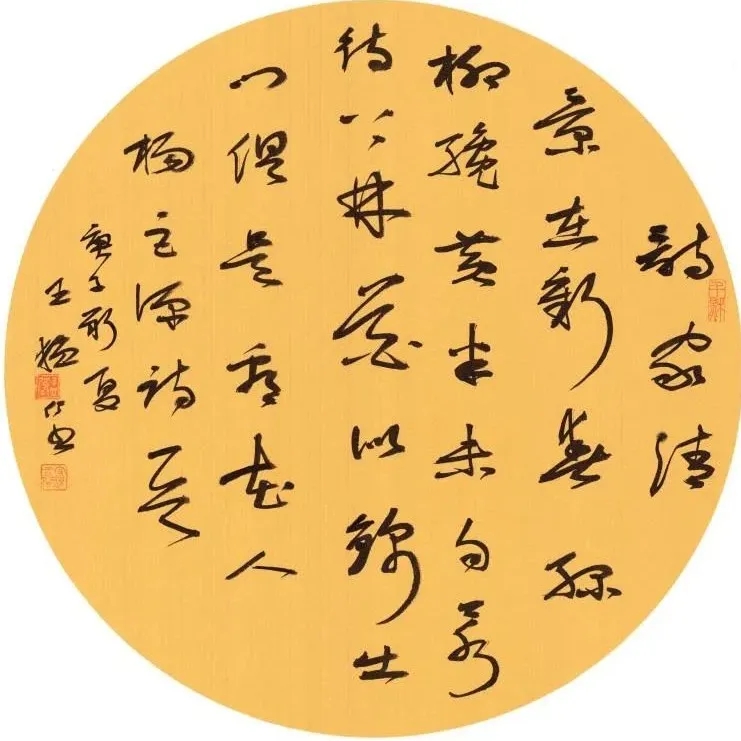 詩家清
景在新春綠
柳纔黃半未勻若
待上林花似錦出
門俱是看花人
楊巨源詩一首
庚子夏
王猛仁書